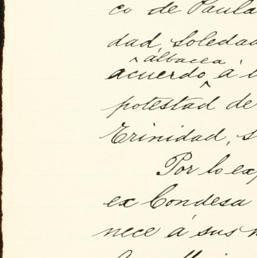 co de Paula
dad, Soledad
albacea
acuerdo, á
potestad de
Trinidad, s
Por lo exp
ex Condesa
nece á sus